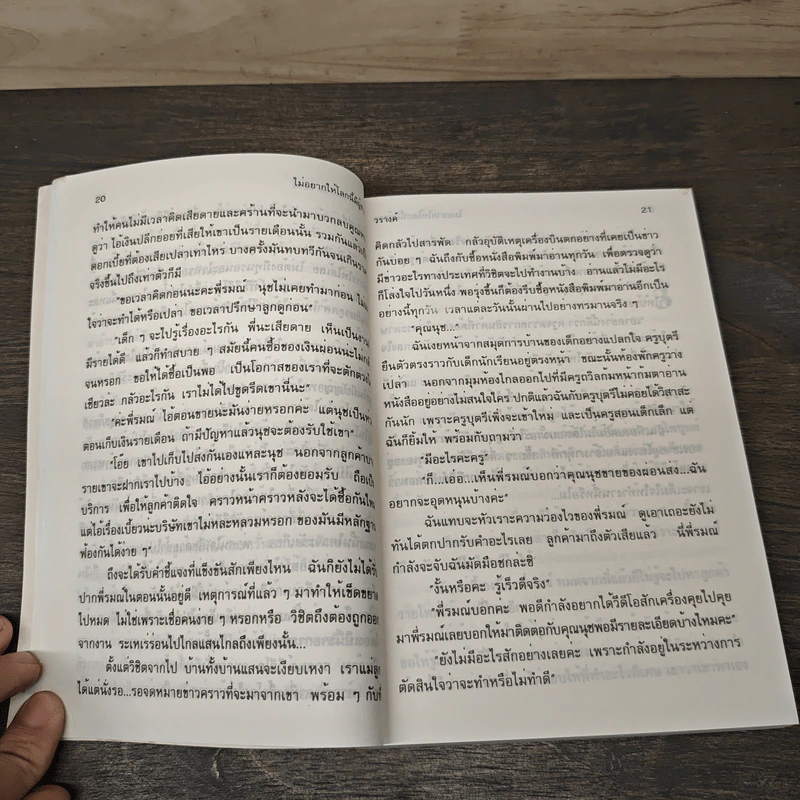 20
ไม่อยากให้โลกนี้มี
ทำให้คนไม่มีเวลาคิดเสียดายและคร้านที่จะนำมาบวกลบคูณหาร
ดูว่า ไอ้เงินปลีกย่อยที่เสียให้เขาเป็นรายเดือนนั้น รวมกันแล้ว
ดอกเบี้ยที่ต้องเสียเปล่าเท่าไหร่ บางครั้งมันทบทวีกันจนเกินราคา
จริงขึ้นไปถึงเท่าตัวก็มี
"ขอเวลาคิดก่อนนะคะพี่รมณ์ นุชไม่เคยทำมาก่อน ไม่
ใจว่าจะทำได้หรือเปล่า ขอเวลาปรึกษาลูกดูก่อน"
"เด็ก ๆ จะไปรู้เรื่องอะไรกัน พี่นะเสียดาย เห็นเป็นงาน
มีรายได้ดี แล้วก็ทำสบาย ๆ สมัยนี้คนซื้อของเงินผ่อนน่ะไม่
จนหรอก ขอให้ได้ซื้อเป็นพอ เป็นโอกาสของเราที่จะตักตวง
เชียวล่ะ กลัวอะไรกัน เราไม่ได้ไปขูดรีดเขานี่นะ"
"ค่ะพี่รมณ์ ไอ้ตอนขายน่ะมันง่ายหรอกค่ะ แต่นุชเป็น
ตอนเก็บเงินรายเดือน ถ้ามีปัญหาแล้วนุชจะต้องรับใช้เขา"
"โอ๊ย เขาไปเก็บไปส่งกันเองแหละนุช นอกจากลูกค้าบาง
รายเขาจะฝากเราไปบ้าง ไอ้อย่างนั้นเราก็ต้องยอมรับ ถือเป็น
บริการ เพื่อให้ลูกค้าติดใจ คราวหน้าคราวหลังจะได้ซื้อกันใหม่
แต่ไอ้เรื่องเบี้ยวน่ะบริษัทเขาไม่หละหลวมหรอก ของมันมีหลักฐาน
ฟ้องกันได้ง่าย ๆ"
ถึงจะได้รับคำชี้แจงที่แข็งขันสักเพียงไหน ฉันก็ยังไม่ได้รับ
ปากพี่รมณ์ในตอนนั้นอยู่ดี เหตุการณ์ที่แล้ว ๆ มาทำให้เข็ดขยาด
ไปหมด ไม่ใช่เพราะเชื่อคนง่าย ๆ หรอกหรือ วิชิตถึงต้องถูกออก
จากงาน ระเหเร่ร่อนไปไกลแสนไกลถึงเพียงนั้น...
ตั้งแต่วิชิตจากไป บ้านทั้งบ้านแสนจะเงียบเหงา เราแม่ลูก
ได้แต่นั่งรอ...รอจดหมายข่าวคราวที่จะมาจากเขา พร้อม ๆ กับที่
วรางค์
21
คิดกลัวไปสารพัด กลัวอุบัติเหตุเครื่องบินตกอย่างที่เคยเป็นข่าว
กันบ่อย ๆ ฉันถึงกับซื้อหนังสือพิมพ์มาอ่านทุกวัน เพื่อตรวจดูว่า
มีข่าวอะไรทางประเทศที่วิชิตจะไปทำงานบ้าง อ่านแล้วไม่มีอะไร
ก็โล่งใจไปวันหนึ่ง พอรุ่งขึ้นก็ต้องรีบซื้อหนังสือพิมพ์มาอ่านอีกเป็น
อย่างนี้ทุกวัน เวลาแต่ละวันนั้นผ่านไปอย่างทรมานจริง ๆ
"คุณนุช..."
ฉันเงยหน้าจากสมุดการบ้านของเด็กอย่างแปลกใจ ครูบุตรี
ยืนตัวตรงราวกับเด็กนักเรียนอยู่ตรงหน้า ขณะนั้นห้องพักครูวาง
เปล่า นอกจากมุมห้องไกลออกไปที่มีครูถวิลก้มหน้าก้มตาอ่าน
หนังสืออยู่อย่างไม่สนใจใคร ปกติแล้วฉันกับครูบุตรีไม่ค่อยได้วิสาสะ
กันนัก เพราะครูบุตรีเพิ่งจะเข้าใหม่ และเป็นครูสอนเด็กเล็ก แต่
ฉันก็ยิ้มให้ พร้อมกับถามว่า
"มีอะไรคะครู"
"ก็...เอ้อ...เห็นพี่รมณ์บอกว่าคุณนุชขายของผ่อนส่ง...ฉัน
อยากจะอุดหนุนบ้างค่ะ"
ฉันแทบจะหัวเราะความว่องไวของพี่รมณ์ ดูเอาเถอะยังไม่
ทันได้ตกปากรับคำอะไรเลย ลูกค้ามาถึงตัวเสียแล้ว นี่พี่รมณ์
กำลังจะจับฉันมัดมือชกล่ะซิ
"งั้นหรือคะ รู้เร็วดีจริง"
"พี่รมณ์บอกค่ะ พอดีกำลังอยากได้วีดีโอสักเครื่องคุยไปคุย
มาพี่รมณ์เลยบอกให้มาติดต่อกับคุณนุชพอมีรายละเอียดบ้างไหมคะ"
"ยังไม่มีอะไรสักอย่างเลยค่ะ เพราะกำลังอยู่ในระหว่างการ
ตัดสินใจว่าจะทำหรือไม่ทำดี"